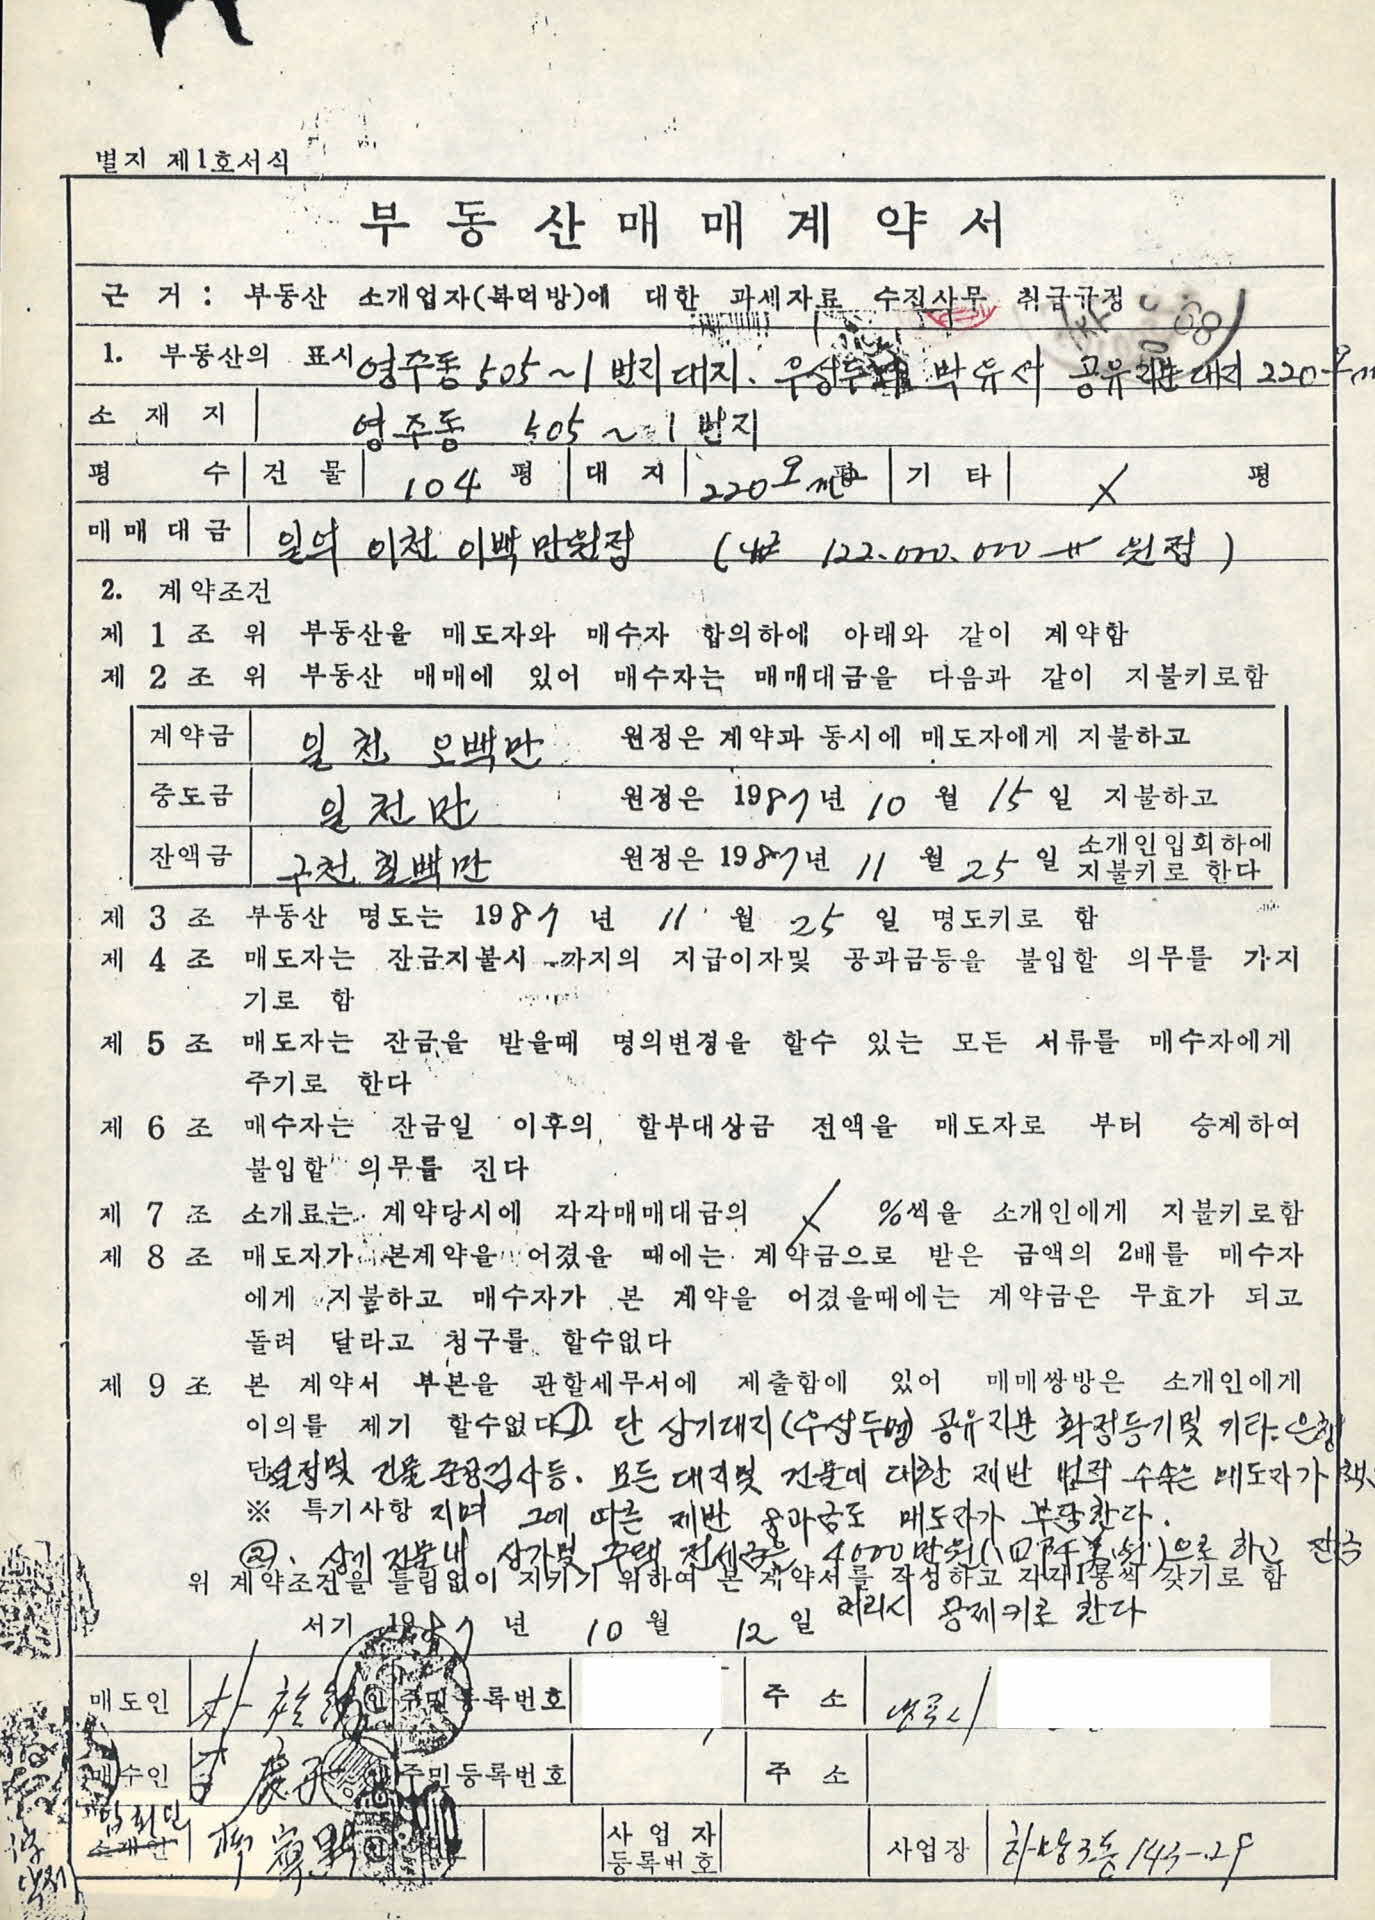 별지 제1호서식
부동산매매계약서
근 거 : 부동산 소개업자(복덕방)에 대한 과세자료 수집사무 취급규정
1. 부동산의 표시 영주동 505~1 번지 대지. 우상두 박유서 공유지분 대지 220
소 재 지 영주동 505~1 번지
평 수 건 물 104 평 대 지 220 평 기 타 × 평
매 매 대 금 일억 이천 이백 만원정 (₩ 122.000.000 원정)
2. 계약조건
제 1 조 위 부동산을 매도자와 매수자 합의하에 아래와 같이 계약함
제 2 조 위 부동산 매매에 있어 매수자는 매매대금을 다음과 같이 지불키로함
계약금 일천 오백만 원정은 계약과 동시에 매도자에게 지불하고
중도금 일천만 원정은 1987년 10 월 15 일 지불하고
잔액금 구천 칠백만 원정은 1987년 11 월 25 일 소개인입회하에 지불키로 한다
제 3 조 부동산 명도는 1987 년 11 월 25 일 명도키로 함
제 4 조 매도자는 잔금지불시 까지의 지급이자및 공과금등을 불입할 의무를 가지
기로 함
제 5 조 매도자는 잔금을 받을때 명의변경을 할수 있는 모든 서류를 매수자에게
주기로 한다
제 6 조 매수자는 잔금일 이후의 할부대상금 전액을 매도자로 부터 승계하여
불입할 의무를 진다
제 7 조 소개료는 계약당시에 각각매매대금의 × %씩을 소개인에게 지불키로함
제 8 조 매도자가 본계약을 어겼을 때에는 계약금으로 받은 금액의 2배를 매수자
에게 지불하고 매수자가 본 계약을 어겼을때에는 계약금은 무효가 되고
돌려 달라고 청구를 할수없다
제 9 조 본 계약서 부본을 관할세무서에 제출함에 있어 매매쌍방은 소개인에게
이의를 제기 할수없다 ①. 단 상기대지(우상두명) 공유지분 확정등기및 기타. 은행
및 건물준공검사등. 모든 대지및 건물에 대한 제반 법적 수속은 매도자가 책
※ 특기사항 지며 그에 따른 제반 공과금도 매도자가 부담한다.
②. 상기 건물내 상가및 주택 전세금은 4000만원( )으로 하고 잔금
위 계약조건을 틀림없이 지키기 위하여 본 계약서를 작성하고 각자1통씩 갖기로 함
처리시 공제키로 한다
서기 1987 년 10 월 12 일
매도인 朴 인 주민등록번호 주 소
매수인 인 주민등록번호 주 소
입회인 소개인 사업자등록번호 사업장 하망3동 143-29